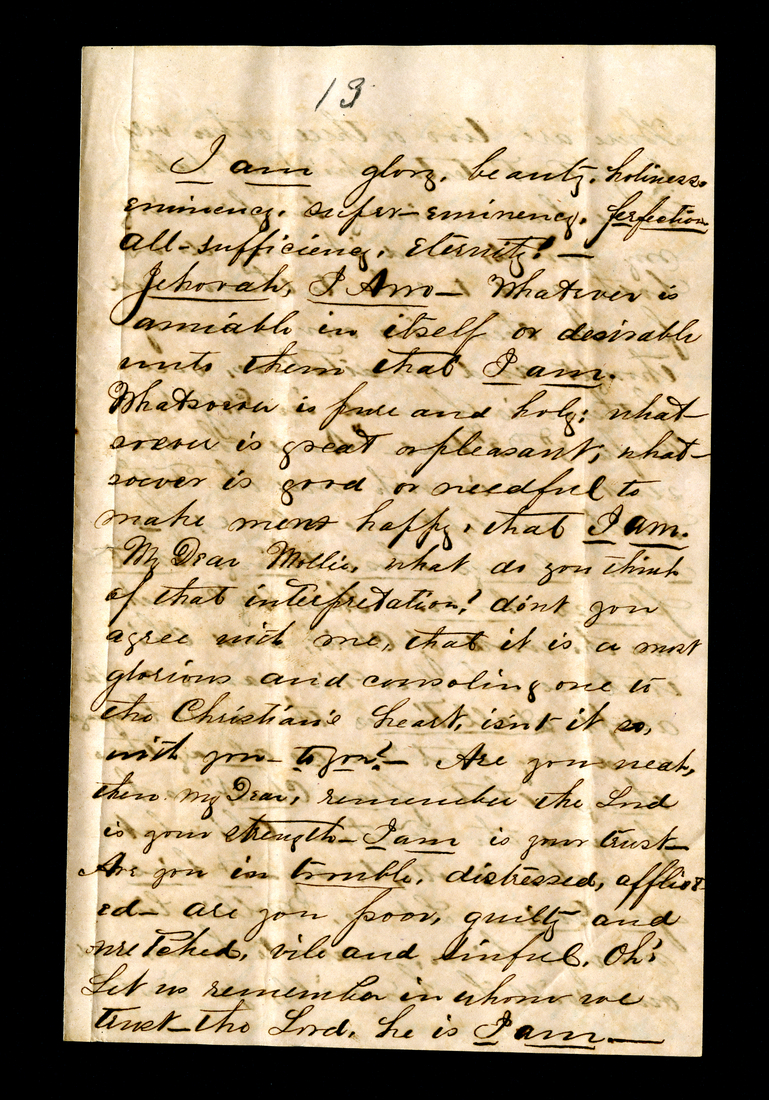 13
I am glory, beauty, holiness,
eminency, super-eminency, perfection
all-sufficiency, eternity! —
Jehovah, I Am — Whatever is
amiable in itself or desirable
unto them that I am.
Whatsoever is pure and holy; what-
soever is great or pleasant; what-
soever is good or needful to
make mens happy, that I am.
My Dear Mollie, what do you think
of that interpretation? dont you
agree with me, that it is a most
glorious and consoling one to
the Christian's heart, isnt it so,
with you — to you? — Are you weak,
then my Dear, remember the Lord
is your strength — I am is your trust —
Are you in trouble, distressed, afflict-
ed — are you poor, guilty and
wretched, vile and sinful, Oh!
Let us remember in whom we
trust — the Lord, he is I am —